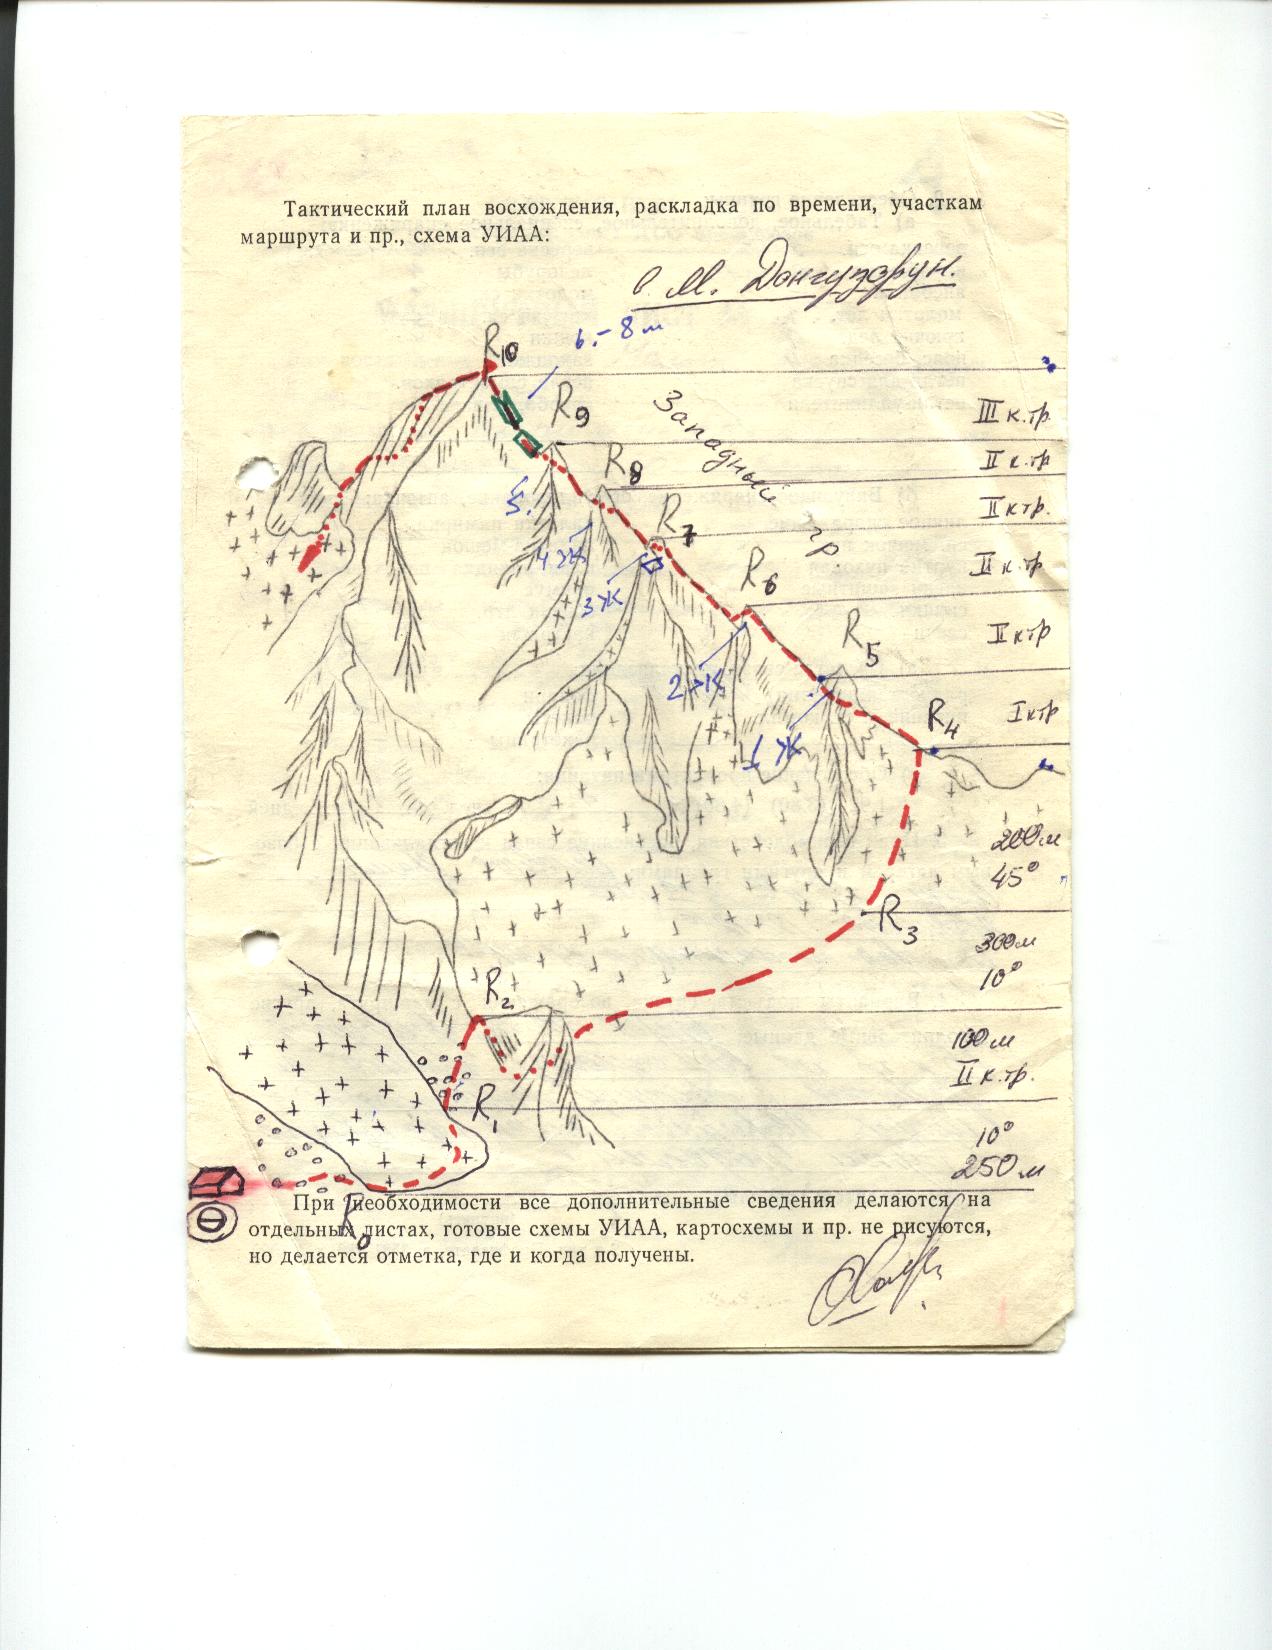 Тактический план восхождения, раскладка по времени, участкам
маршрута и пр., схема УИАА:
М. Донгузорун.
6.- 8 м
R10
R9
III к.тр.
Западный гр
II к.тр.
R8
5.
II к.тр.
R7
4 Ж
II к.тр.
3 Ж
R6
II к.тр
R5
2 Ж
I ктр
R4
1 Ж
200 м
45°
R3
300м
10°
R2
100 м
II к.тр.
R1
10°
250 м
R0
При необходимости все дополнительные сведения делаются на
отдельных листах, готовые схемы УИАА, картосхемы и пр. не рисуются,
но делается отметка, где и когда получены.